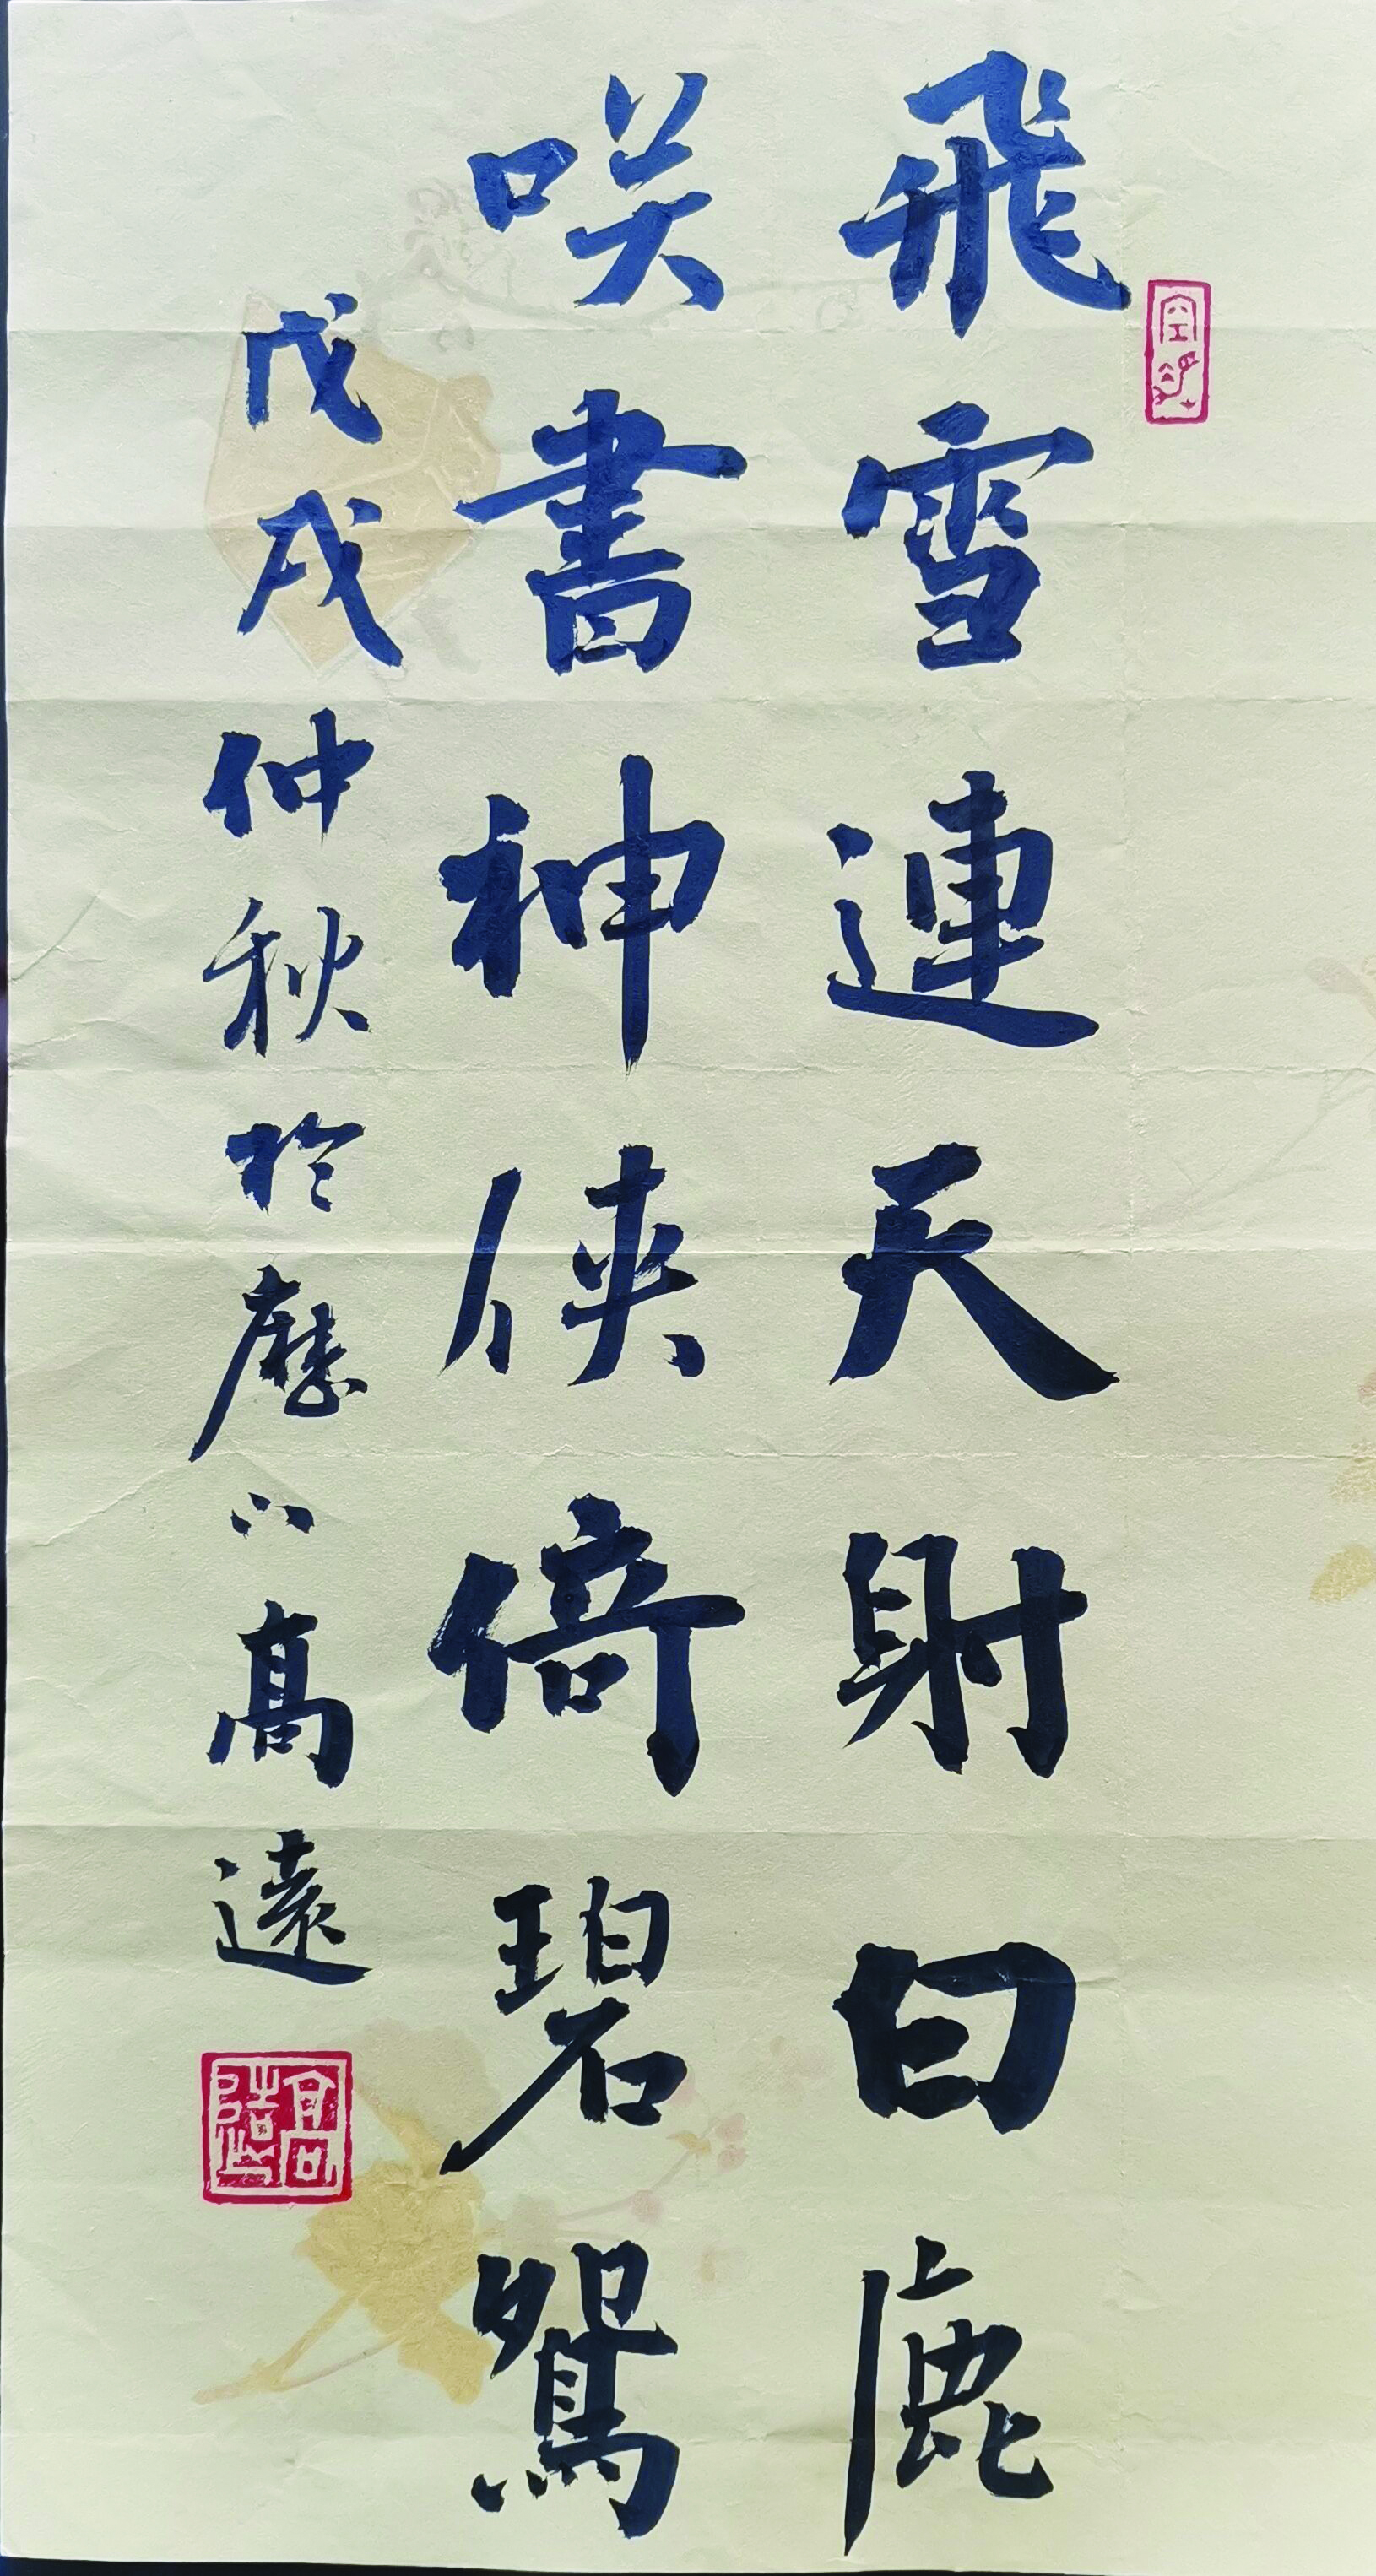 飛雪連天射白鹿
咲書神俠倚碧鴛
戊戌仲秋於歷下高遠